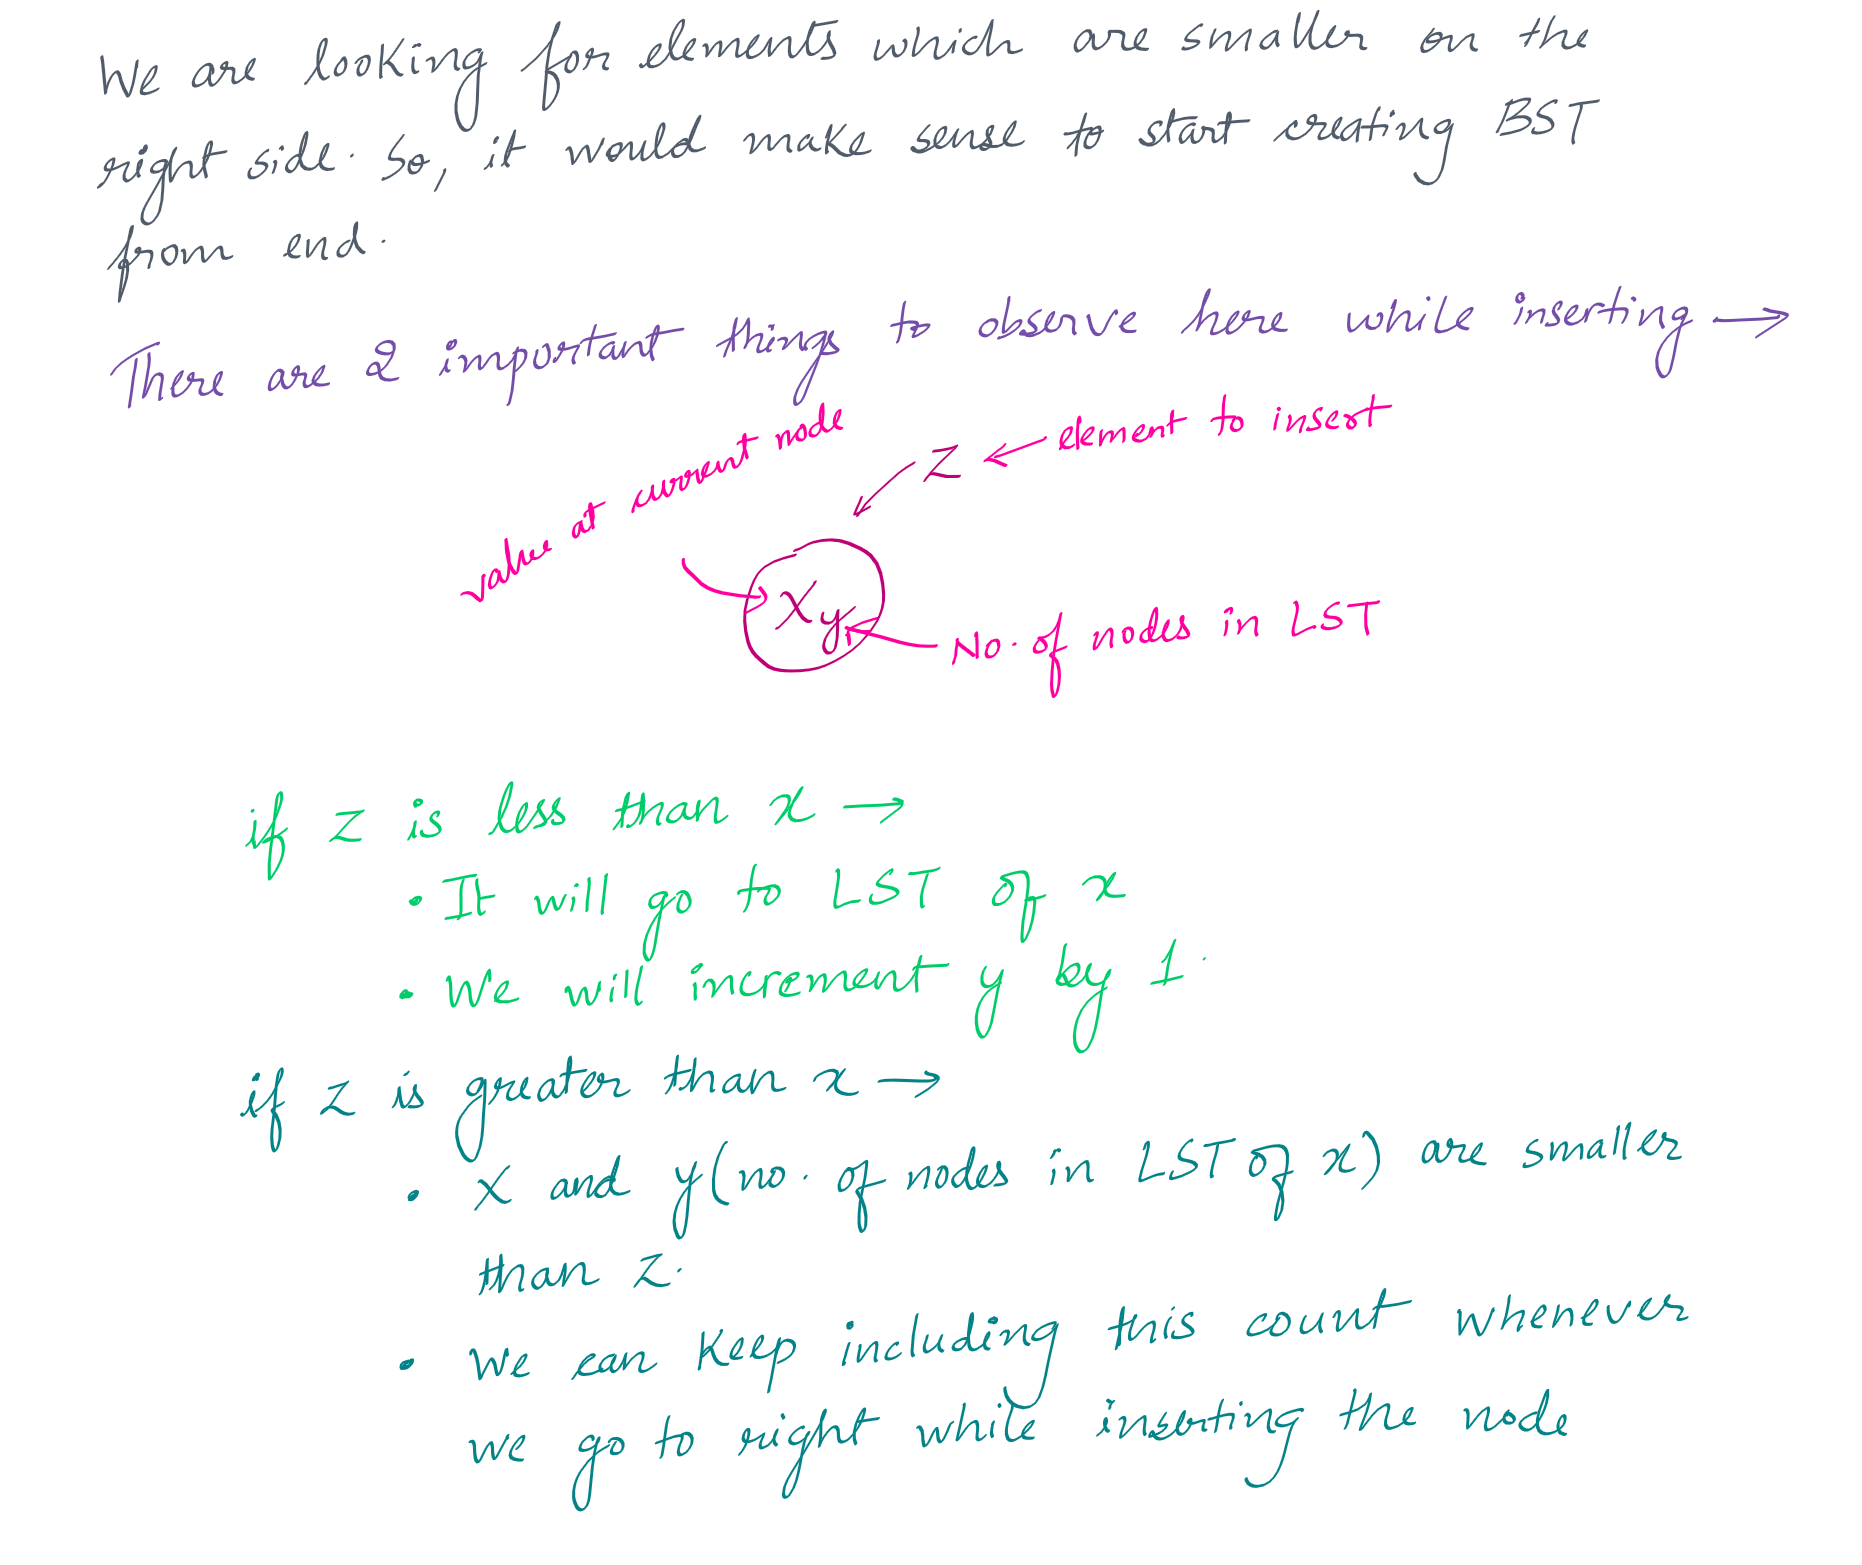 We are looking for elements which are smaller on the
right side. So, it would make sense to start creating BST
from end.
There are 2 important things to observe here while inserting →
value at current node
Z ← element to insert
X y
No. of nodes in LST
if z is less than x →
• It will go to LST of x
• We will increment y by 1.
if z is greater than x →
• X and y (no. of nodes in LST of x) are smaller
than z.
• We can keep including this count whenever
we go to right while inserting the node